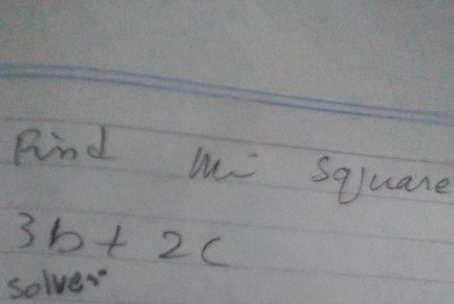 Find the square
3b + 2c
solve:-